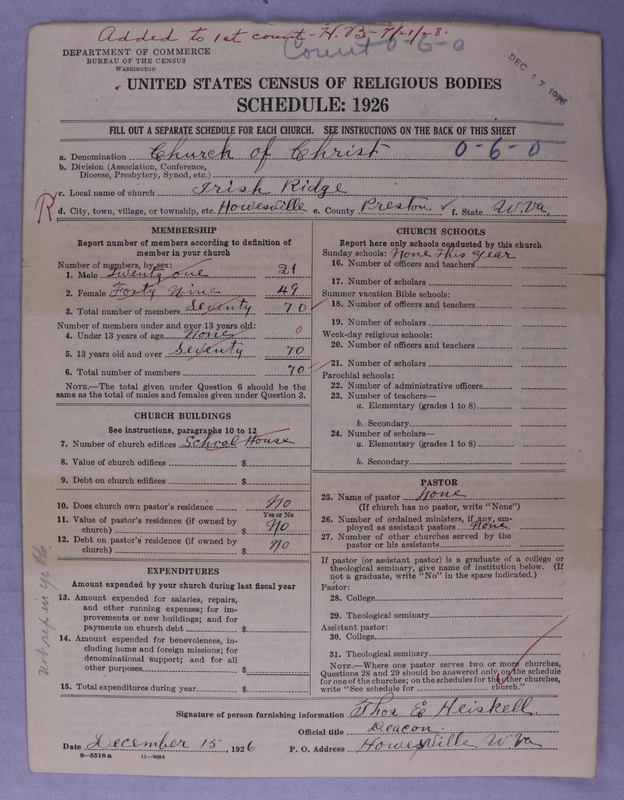 Added to 1st count - H.B - 7/-1/-8.
Count 0-6-0
DEPARTMENT OF COMMERCE
BUREAU OF THE CENSUS
WASHINGTON
DEC 17 1926
UNITED STATES CENSUS OF RELIGIOUS BODIES
SCHEDULE: 1926
FILL OUT A SEPARATE SCHEDULE FOR EACH CHURCH. SEE INSTRUCTIONS ON THE BACK OF THIS SHEET
a. Denomination Church of Christ 0-6-0
b. Division (Association, Conference,
Diocese, Presbytery, Synod, etc.)
c. Local name of church Irish Ridge
R d. City, town, village, or township, etc. Howesville e. County Preston f. State W.Va.
MEMBERSHIP
Report number of members according to definition of
member in your church
Number of members, by sex:
1. Male Twenty one 21
2. Female Forty Nine 49
3. Total number of members Seventy 70
Number of members under and over 13 years old:
4. Under 13 years of age None 0
5. 13 years old and over Seventy 70
6. Total number of members 70
NOTE.—The total given under Question 6 should be the
same as the total of males and females given under Question 3.
CHURCH BUILDINGS
See instructions, paragraphs 10 to 12
7. Number of church edifices School House
8. Value of church edifices $
9. Debt on church edifices $
10. Does church own pastor's residence No
Yes or No
11. Value of pastor's residence (if owned by
church) $ No
12. Debt on pastor's residence (if owned by
church) $ No
EXPENDITURES
Amount expended by your church during last fiscal year
13. Amount expended for salaries, repairs,
and other running expenses; for im-
provements or new buildings; and for
payments on church debt $
14. Amount expended for benevolences, in-
cluding home and foreign missions; for
denominational support; and for all
other purposes $
15. Total expenditures during year $
CHURCH SCHOOLS
Report here only schools conducted by this church
Sunday schools: None This Year
16. Number of officers and teachers
17. Number of scholars
Summer vacation Bible schools:
18. Number of officers and teachers
19. Number of scholars
Week-day religious schools:
20. Number of officers and teachers
21. Number of scholars
Parochial schools:
22. Number of administrative officers
23. Number of teachers—
a. Elementary (grades 1 to 8)
b. Secondary
24. Number of scholars—
a. Elementary (grades 1 to 8)
b. Secondary
PASTOR
25. Name of pastor None
(If church has no pastor, write "None")
26. Number of ordained ministers, if any, em-
ployed as assistant pastors None
27. Number of other churches served by the
pastor or his assistants
If pastor (or assistant pastor) is a graduate of a college or
theological seminary, give name of institution below. (If
not a graduate, write "No" in the space indicated.)
Pastor:
28. College
29. Theological seminary
Assistant pastor:
30. College
31. Theological seminary
NOTE.—Where one pastor serves two or more churches,
Questions 28 and 29 should be answered only on the schedule
for one of the churches; on the schedules for the other churches,
write "See schedule for church."
Signature of person furnishing information Thos E Heiskell
Official title Deacon
Date December 15, 1926 P. O. Address Howesville W Va
8—5518a 11—9654